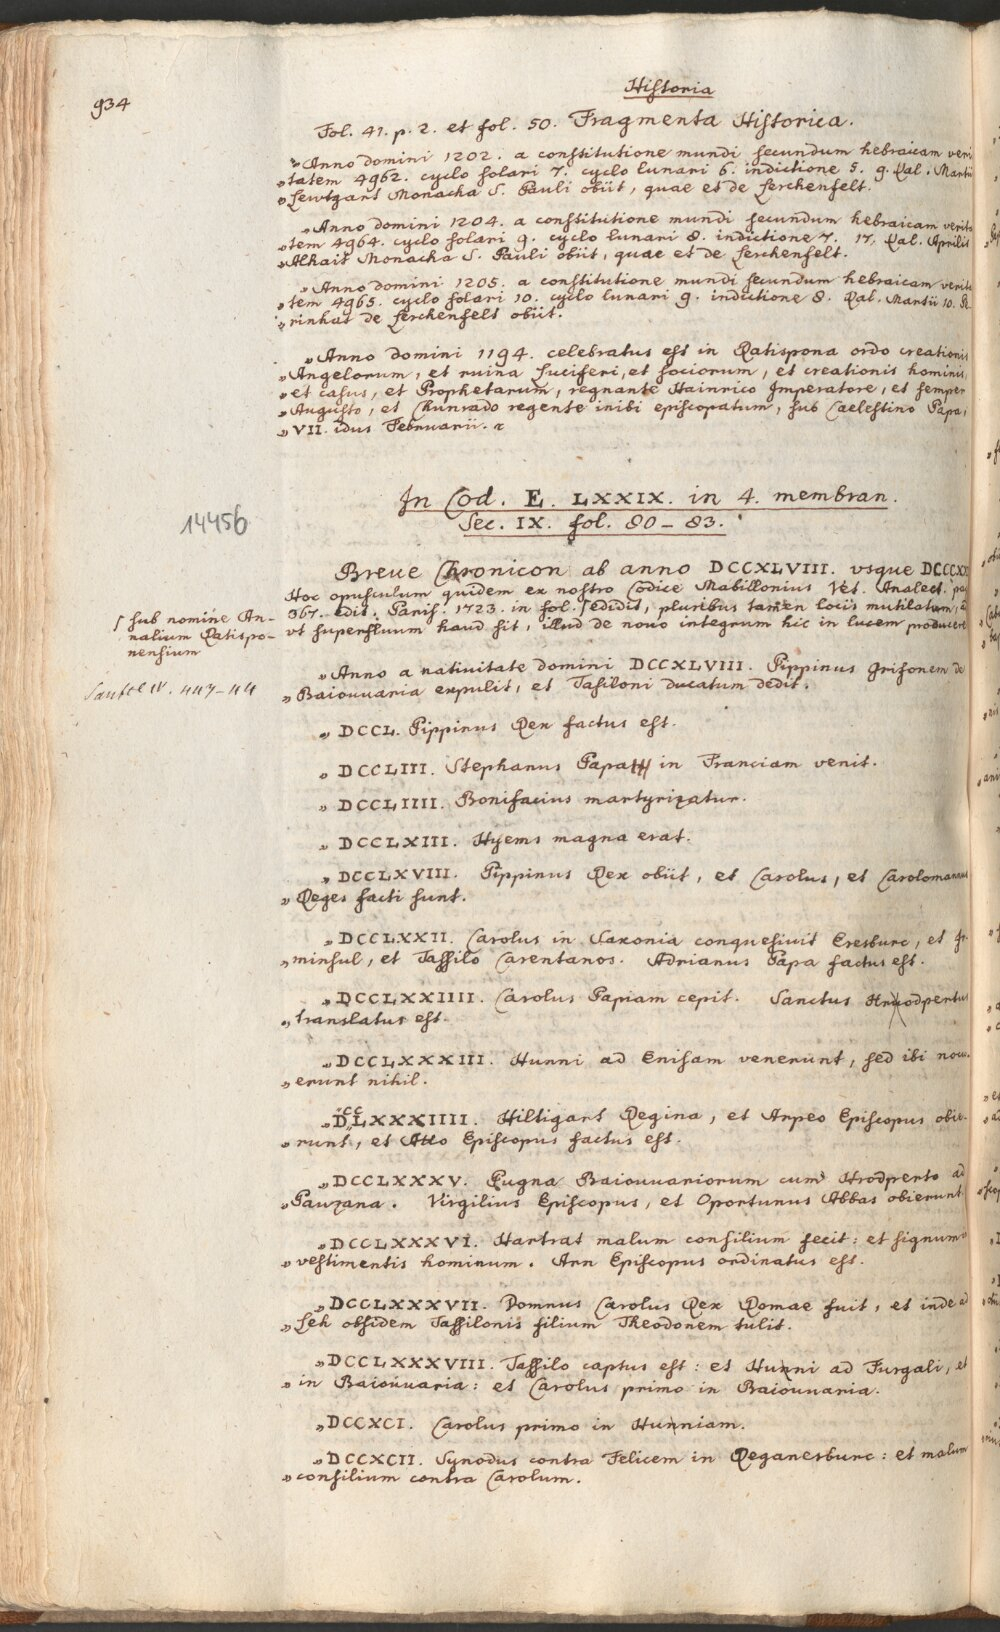 934
Historia
Fol. 41. p. 2. et fol. 50. Fragmenta Historica.
„Anno domini 1202. a constitutione mundi secundum hebraicam veri
„tatem 4962. cyclo solari 7. cyclo lunari 6. indictione 5. 9. Kal. Martii
„Lewtgart Monacha S. Pauli obiit, quae et de Lerchenfelt.
„Anno domini 1204. a constitutione mundi secundum hebraicam verita
„tem 4964. cyclo solari 9. cyclo lunari 8. indictione 7. 17. Kal. Aprilis
„Alhait Monacha S. Pauli obiit, quae et de Lerchenfelt.
„Anno domini 1205. a constitutione mundi secundum hebraicam verita
„tem 4965. cyclo solari 10. cyclo lunari 9. indictione 8. Kal. Martii 10.
„rinhat de Lerchenfelt obiit.
„Anno domini 1194. celebratus est in Ratispona ordo creationis
„Angelorum, et ruina Luciferi, et sociorum, et creationis hominis,
„et casus, et Prophetarum, regnante Hainrico Imperatore, et semper
„Augusto, et Chunrado regente inibi episcopatum, sub Caelestino Papa,
„VII. idus Februarii.
In Cod. E. LXXIX. in 4. membran.
Sec. IX. fol. 80 – 83.
14456
Breue Chronicon ab anno DCCXLVIII. vsque DCCCXX
Hoc opusculum quidem ex nostro Codice Mabillonius Vet. Analect. pag
367. edit. Paris. 1723. in fol. ſ edidit, pluribus tamen locis mutilatum, a
vt superfluum haud sit, illud de nouo integrum hic in lucem producere
ſ sub nomine An-
nalium Ratispo-
nensium
„Anno a nativitate domini DCCXLVIII. Pippinus Grifonem de
„Baiouuaria expulit, et Tasiloni ducatum dedit.
„DCCL. Pippinus Rex factus est.
„DCCLIII. Stephanus Papa in Franciam venit.
„DCCLIIII. Bonifacius martyrizatur.
„DCCLXIII. Hyems magna erat.
„DCCLXVIII. Pippinus Rex obiit, et Carolus, et Carolomannus
„Reges facti sunt.
„DCCLXXII. Carolus in Saxonia conquesiuit Eresburc, et Ir-
„minsul, et Tassilo Carentanos. Adrianus Papa factus est.
„DCCLXXIIII. Carolus Papiam cepit. Sanctus Hruodpertus
„translatus est.
„DCCLXXXIII. Hunni ad Enisam venerunt, sed ibi nocu-
„erunt nihil.
„DCCLXXXIIII. Hiltigart Regina, et Arpeo Episcopus obie-
„runt, et Atto Episcopus factus est.
„DCCLXXXV. Pugna Baiouuariorum cum Hrodperto ad
„Pauzana. Virgilius Episcopus, et Oportunus Abbas obierunt.
„DCCLXXXVI. Hartrat malum consilium fecit: et signum
„vestimentis hominum. Arn Episcopus ordinatus est.
„DCCLXXXVII. Domnus Carolus Rex Romae fuit, et inde ad
„Leh obsidem Tassilonis filium Theodonem tulit.
„DCCLXXXVIII. Tassilo captus est: et Hunni ad Furgali, et
„in Baiouuaria: et Carolus primo in Baiouuaria.
„DCCXCI. Carolus primo in Hunniam.
„DCCXCII. Synodus contra Felicem in Reganesburc: et malum
„consilium contra Carolum.